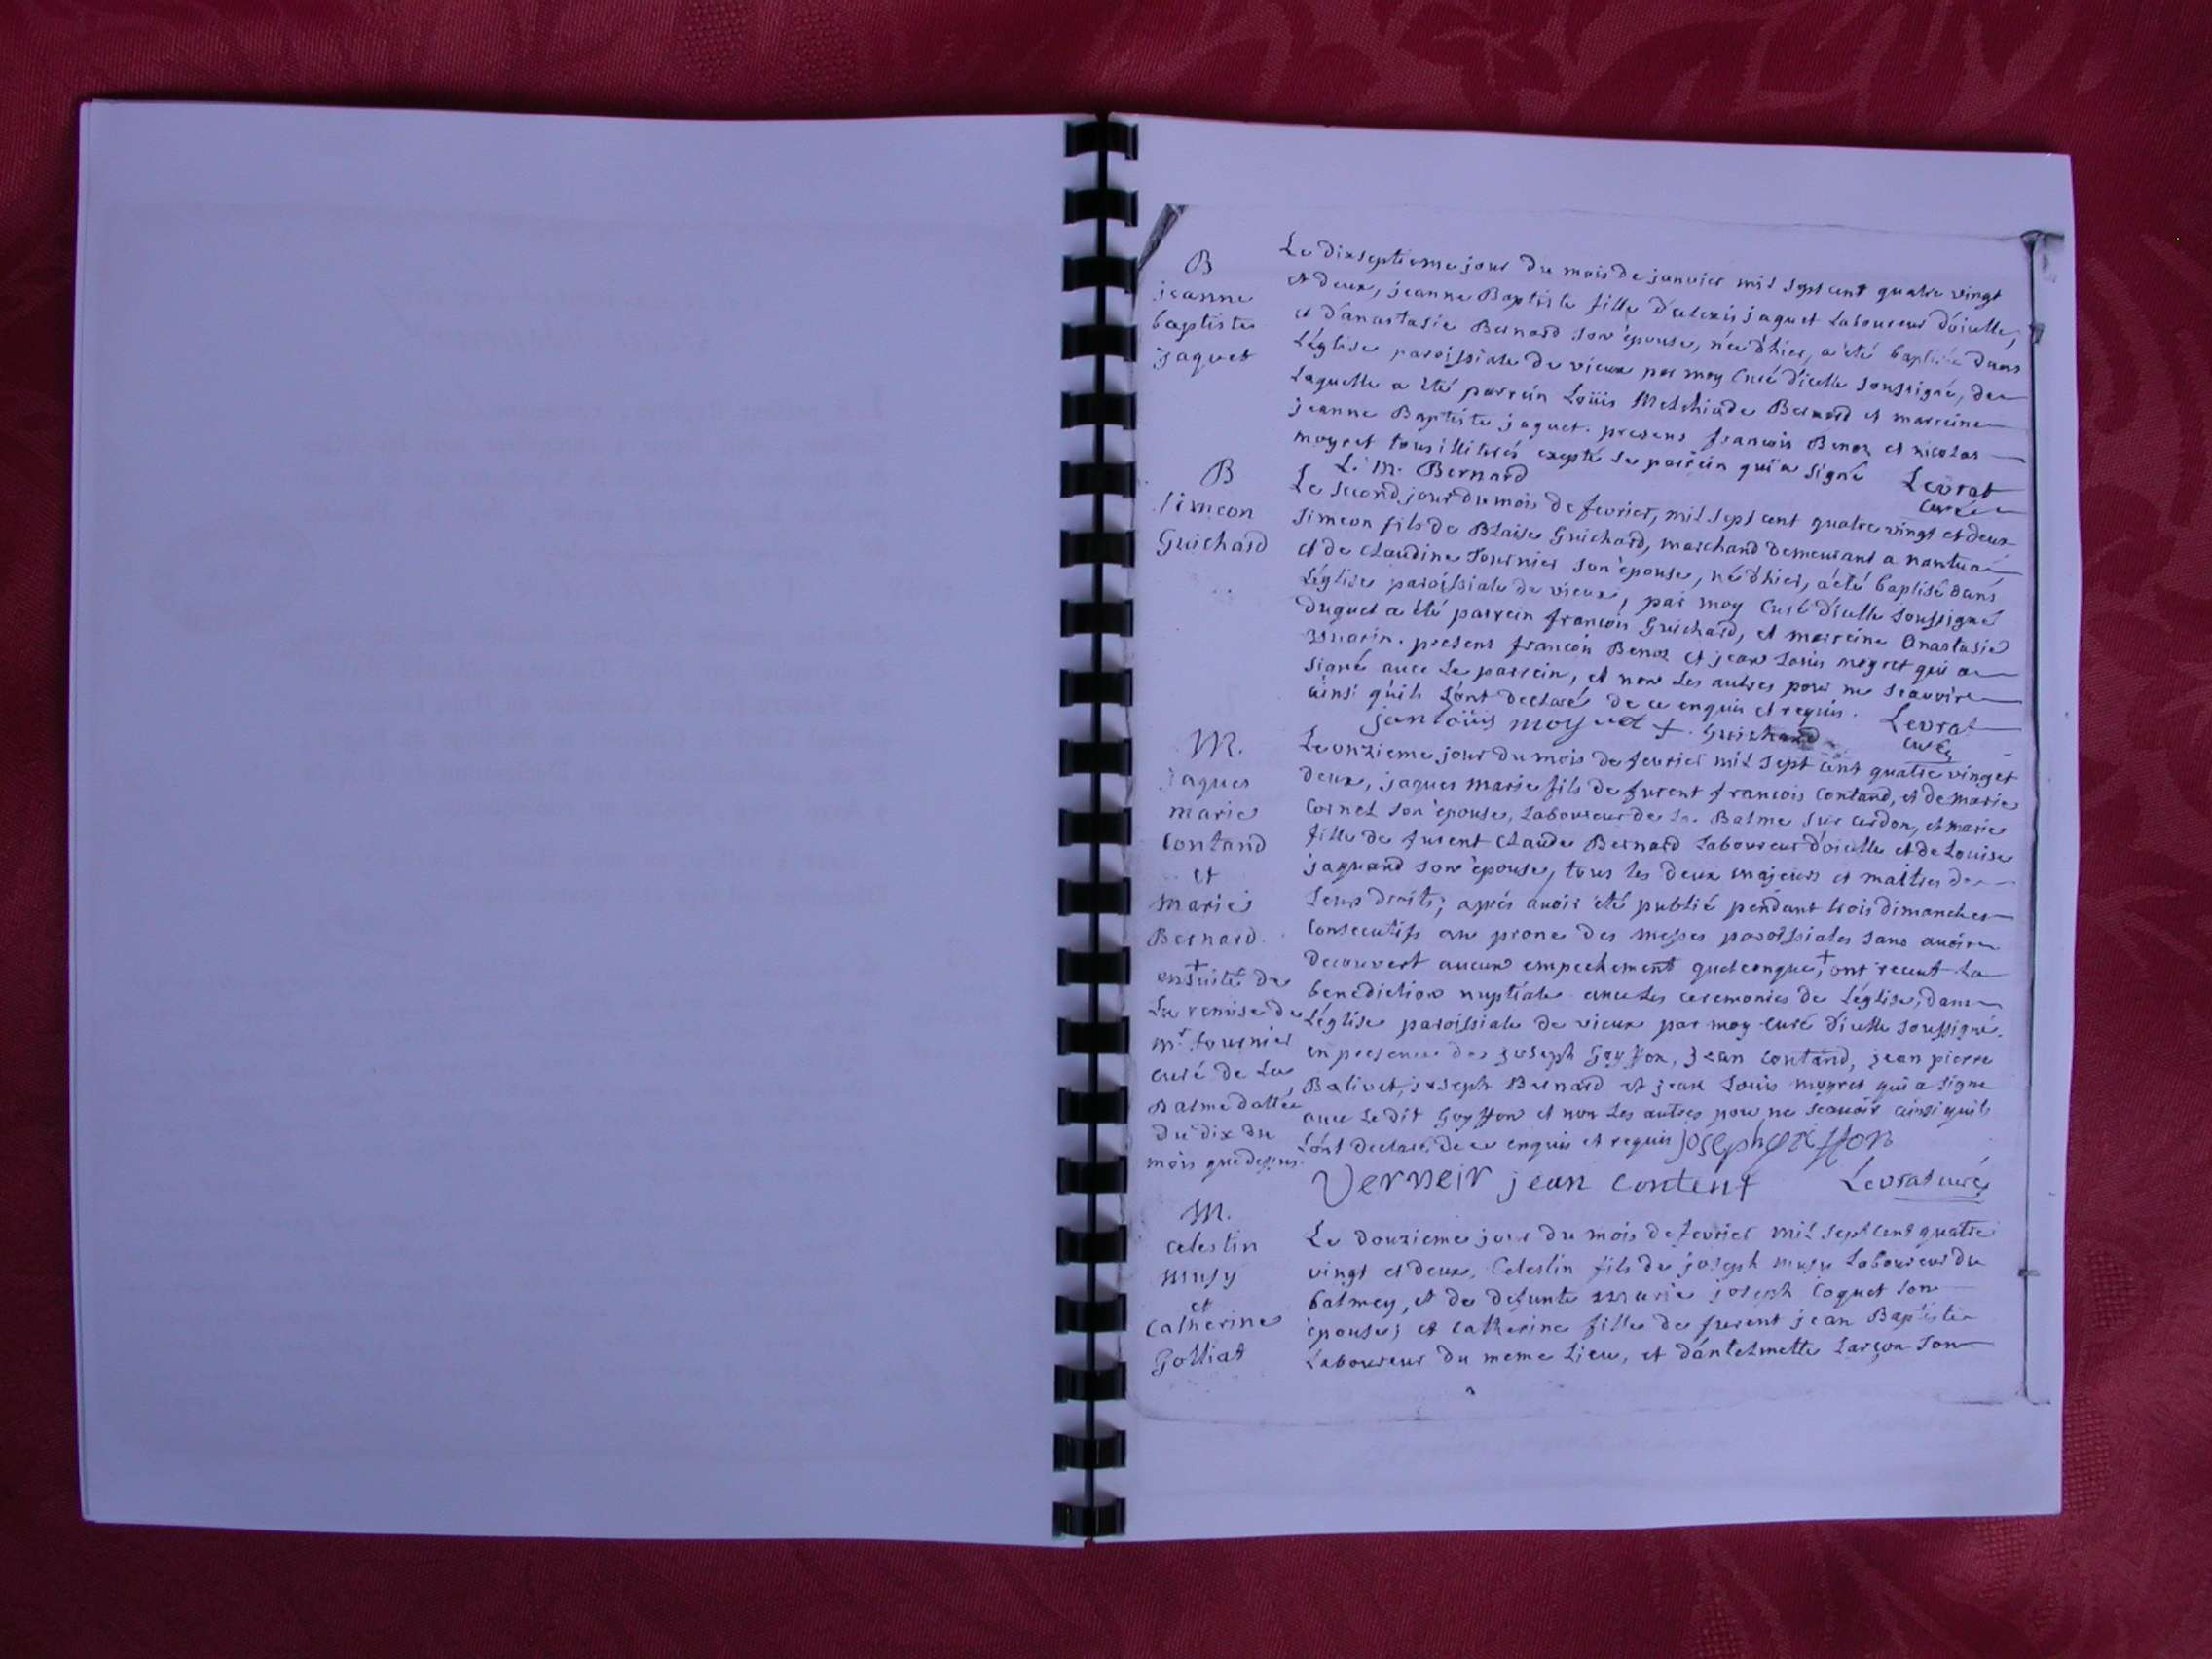 B
jeanne
baptiste
jaquet
Le dixseptieme jour du mois de janvier mil sept cent quatre vingt
et deux, jeanne Baptiste fille d'alexis jaquet Laboureur d'icelle,
et d'anastasie Bernard son épouse, née d'hier, a été baptisée dans
L'église paroissiale de vieux par moy Curé d'icelle soussigné, de
Laquelle a été parrein Loüis Melchiade Bernard et marreine
jeanne Baptiste jaquet. presens francois Benoz et nicolas
moyret tous illiterés excepté le parrein qui a signé Levrat
L. M. Bernard curé
B
Simeon
Guichard
Le second jour du mois de fevrier, mil sept cent quatre vingt et deux
Simeon fils de Blaise Guichard, marchand demeurant a nantua
et de Claudine fournier son épouse, né d'hier, a été baptisé dans
L'église paroissiale de vieux, par moy Curé d'icelle soussigné
duquel a été parrein francois Guichard, et marreine Anastasie
presens francois Benoz et jean Louis moyret qui a
signé avec le parrein, et non les autres pour ne scauoire
ainsi qu'ils l'ont declaré de ce enquis et requis. Levrat
jan loüis moyret f. Guichard curé
M.
jaques
marie
Contand
et
marie
Bernard.
Le onzieme jour du mois de fevrier mil sept cent quatre vinget
deux, jaques marie fils de furent francois Contand, et de marie
Cornez son épouse, Laboureur de La Balme sur cerdon, et marie
fille de furent Claude Bernard Laboureur d'icelle et de Louise
jaquand son épouse, tous les deux majeurs et maitres de
Leurs droits; aprés avoir été publié pendant trois dimanches
Consecutifs au prone des messes paroissiales sans avoir
decouvert aucun empechement quelconque,+ ont recut La
benediction nuptiale avec Les ceremonies de L'église, dans
L'église paroissiale de vieux par moy curé d'icelle soussigné.
en presence de joseph Goyffon, jean Contand, jean pierre
Balivet, joseph Bernard et jean Louis moyret qui a signe
avec Le dit Goyffon et non Les autres pour ne scauoir ainsi quils
L'ont declaré, de ce enquis et requis joseph goiffon
jean content Levrat curé
+
ensuite de
La remise de
mr. fournier
curé de La
Balme dattée
du dix du
mois que dessus.
M.
Celestin
musy
et
Catherine
Golliat
Le douzieme jour du mois de fevrier mil sept cent quatre
vingt et deux, Celestin fils de joseph musy Laboureur du
balmey, et de defunte marie joseph Coquet son
épouse; et Catherine fille de furent jean Baptiste
Laboureur du meme Lieu, et d'antelmette Larçon son